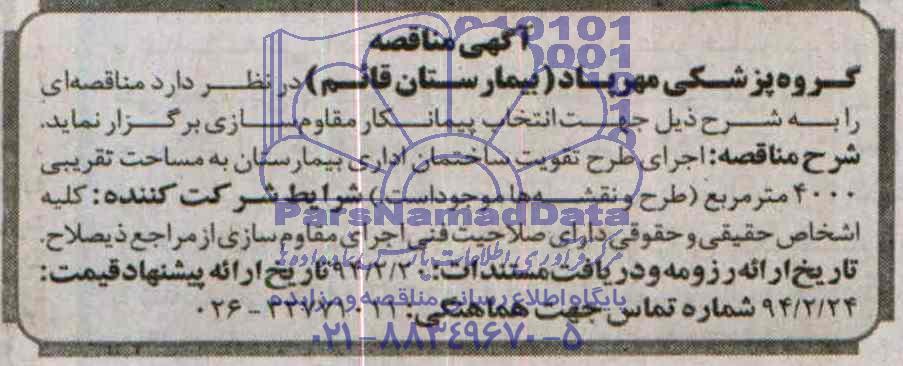 آگهی مناقصه
گروه پزشکی مهرباد (بیمارستان قائم) در نظر دارد مناقصه‌ای
را به شرح ذیل جهت انتخاب پیمانکار مقاوم سازی برگزار نماید.
شرح مناقصه: اجرای طرح تقویت ساختمان اداری بیمارستان به مساحت تقریبی
۴۰۰۰ مترمربع (طرح و نقشه ها موجود است.) شرایط شرکت کننده: کلیه
اشخاص حقیقی و حقوقی دارای صلاحیت فنی اجرای مقاوم سازی از مراجع ذیصلاح.
تاریخ ارائه رزومه و دریافت مستندات: تاریخ ارائه پیشنهاد قیمت:
۹۴/۲/۲۴ شماره تماس جهت هماهنگی: ۰۲۶ -
ParsNamadData
مرکز فرآوری اطلاعات پارس نماد داده ها
پایگاه اطلاع رسانی مناقصه و مزایده
۰۲۱-۸۸۳۴۹۶۷۰-۵